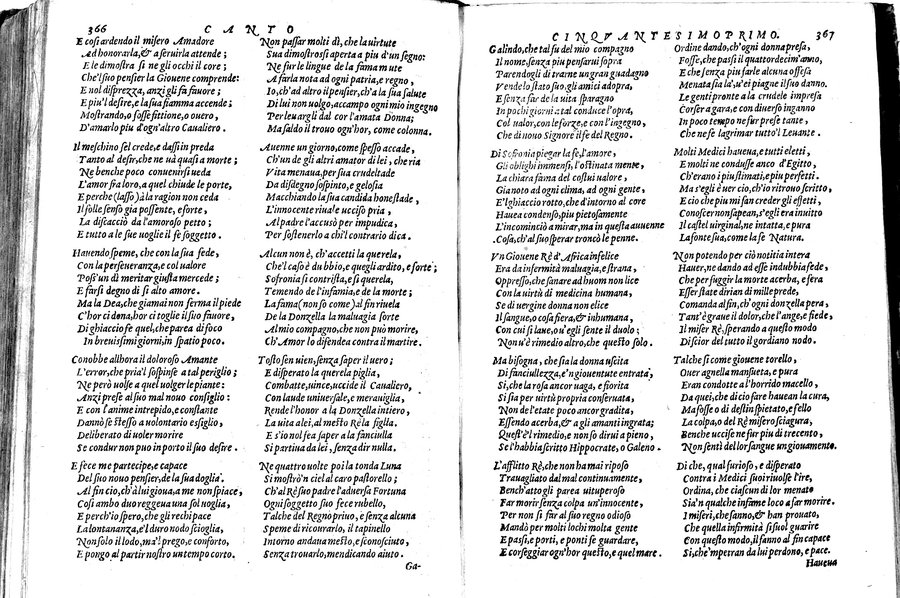 366
CANTO
E cosi ardendo il misero Amadore
Ad honorarla, & a seruirla attende;
E le dimostra sì ne gli occhi il core;
Che'l suo pensier la Giouene comprende:
E nol disprezza, anzi gli fa fauore;
E piu'l desire, e la sua fiamma accende;
Mostrando, o fosse fittione, o uero,
D'amarlo piu d'ogn'altro Caualiero.
Il meschino sel crede, e dassi in preda
Tanto al desir, che ne uà quasi a morte;
Ne benche poco conuenirsi ueda
L'amor fia loro, a quel chiude le porte,
E perche (lasso) à la ragion non ceda
Il folle senso gia possente, e forte,
La discacciò da l'amoroso petto;
E tutto a le sue uoglie il fe soggetto.
Hauendo speme, che con la sua fede,
Con la perseueranza, e col ualore
Poss'un dì meritar giusta mercede;
E farsi degno di sì alto amore.
Ma la Dea, che giamai non ferma il piede
C'hor ci dona, hor ci toglie il suo fauore,
Di ghiaccio fe quel, che parea di foco
In breuissimi giorni, in spatio poco.
Conobbe allhora il doloroso Amante
L'error, che pria'l sospinse a tal periglio;
Ne però uolse a quel uolger le piante:
Anzi prese al suo mal nuouo consiglio:
E con l'anime intrepido, e constante
Dannò se stesso a uolontario essiglio,
Deliberato di uoler morire
Se condur non puo in porto il suo desire.
E fece me partecipe, e capace
Del suo nouo pensier, de la sua doglia.
Al fin ciò, ch'à lui gioua, a me non spiace,
Così ambo duo reggeua una sol uoglia,
E perch'io spero, che gli rechi pace
La lontananza, e'l duro nodo scioglia,
Non solo il lodo, ma'l prego, e conforto,
E pongo al partir nostro un tempo corto.
Non passar molti dì, che la uirtute
Sua dimostrossi aperta a piu d'un segno:
Ne fur le lingue de la fama mute
A farla nota ad ogni patria, e regno,
Io, ch'ad altro il pensier, ch'a la sua salute
Di lui non uolgo, accampo ogni mio ingegno
Per leuargli dal cor l'amata Donna;
Ma saldo il trouo ogn'hor, come colonna.
Auenne un giorno, come spesso accade,
Ch'un de gli altri amator di lei, che ria
Vita menaua, per sua crudeltade
Da disdegno sospinto, e gelosia
Macchiando la sua candida honestade,
L'innocente riuale uccise pria,
Al padre l'accusò per impudica,
Per sostenerlo a chi'l contrario dica.
Alcun non è, ch'accetti la querela,
Che'l caso è dubbio, e quegli ardito, e forte;
Sofronia si contrista, e si querela,
Temendo de l'infamia, e de la morte;
La fama (non so come) al fin riuela
De la Donzella la maluagia sorte
Al mio compagno, che non può morire,
Ch'Amor lo difendea contra il martire.
Tosto sen uien, senza saper il uero;
E disperato la querela piglia,
Combatte, uince, uccide il Caualiero,
Con laude uniuersale, e merauiglia,
Rende l'honor a la Donzella intiero,
La uita a lei, al mesto Rè la figlia.
E s'io nol fea saper a la fanciulla
Si partiua da lei, senza dir nulla.
Ne quattro uolte poi la tonda Luna
Si mostrò'n ciel al caro pastorello;
Ch'al Rè suo padre l'aduersa Fortuna
Ogni soggetto suo fece rubello,
Talche del Regno priuo, e senza alcuna
Speme di ricourarlo, il tapinello
Intorno andaua mesto, e sconosciuto,
Senza trouarlo, mendicando aiuto.
Ga-
CINQVANTESIMOPRIMO.
367
Galindo, che tal fu del mio compagno
Il nome, senza piu pensarui sopra
Parendogli di trarne un gran guadagno
Vende lo stato suo, gli amici adopra,
E senza far de la uita sparagno
In pochi giorni a tal conduce l'opra,
Col ualor, con le forze, e con l'ingegno,
Che di nouo Signore il fe del Regno.
Di Sofronia piegar la fe, l'amore,
Gli oblighi immensi, l'ostinata mente,
La chiara fama del costui ualore,
Gia noto ad ogni clima, ad ogni gente,
E'l ghiaccio rotto, che d'intorno al core
Hauea condenso, piu pietosamente
L'incominciò a mirar, ma in questa auuenne
Cosa, ch'al suo sperar troncò le penne.
Vn Giouene Rè d'Africa infelice
Era da infermità maluagia, e strana,
Oppresso, che sanare ad huom non lice
Con la uirtù di medicina humana,
Se di uergine donna non elice
Il sangue, o cosa fiera, & inhumana,
Con cui si laue, ou'egli sente il duolo;
Non u'è rimedio altro, che questo solo.
Ma bisogna, che sia la donna uscita
Di fanciullezza, e'n giouentute entrata,
Sì, che la rosa ancor uaga, e fiorita
Si sia per uirtù propria conseruata,
Non de l'etate poco ancor gradita,
Essendo acerba, & a gli amanti ingrata;
Quest'è l rimedio, e non so dirui a pieno,
Se l'habbia scritto Hippocrate, o Galeno.
L'afflitto Rè, che non ha mai riposo
Trauagliato dal mal continuamente,
Bench'atto gli parea uituperoso
Far morir senza colpa un'innocente,
Per non si far al suo regno odioso
Mandò per molti lochi molta gente
E passi, e porti, e ponti se guardare,
E corseggiar ogn'hor questo, e quel mare.
Ordine dando, ch'ogni donna presa,
Fosse, che passi il quattordecim'anno,
E che senza piu farle alcuna offesa
Menata sia là, u'ei piagne il suo danno.
Le genti pronte a la crudele impresa
Corser a gara, e con diuerso inganno
In poco tempo ne fur prese tante,
Che ne fe lagrimar tutto'l Leuante.
Molti Medici haueua, e tutti eletti,
E molti ne condusse anco d'Egitto,
Ch'erano i piu stimati, e piu perfetti.
Ma s'egli è uer ciò, ch'io ritrouo scritto,
E cio che piu mi fan creder gli effetti,
Conoscer non sapean, s'egli era inuitto
Il castel uirginal, ne intatta, e pura
La fonte sua, come la fe Natura.
Non potendo per ciò notitia intera
Hauer, ne dando ad esse indubbia fede,
Che per fuggir la morte acerba, e fera
Esser state dirian di mille prede,
Comanda al fin, ch'ogni donzella pera,
Tant'è graue il dolor, che l'ange, e fiede,
Il miser Rè, sperando a questo modo
Discior del tutto il gordiano nodo.
Talche sì come giouene torello,
Ouer agnella mansueta, e pura
Eran condotte a l'horrido macello,
Da quei, che di ciò fare hauean la cura,
Ma fosse o di destin spietato, e fello
La colpa, o del Rè misero sciagura,
Benche uccise ne fur piu di trecento,
Non sentì del lor sangue un giouamento.
Di che, qual furioso, e disperato
Contra i Medici suoi riuolse l'ire,
Ordina, che ciascun di lor menato
Sia'n qualche infame loco a far morire.
I miseri, che sanno, & han prouato,
Che quella infirmità si suol guarire
Con questo modo, il fanno al fin capace
Sì, che'mpetran da lui perdono, e pace.
Haueua